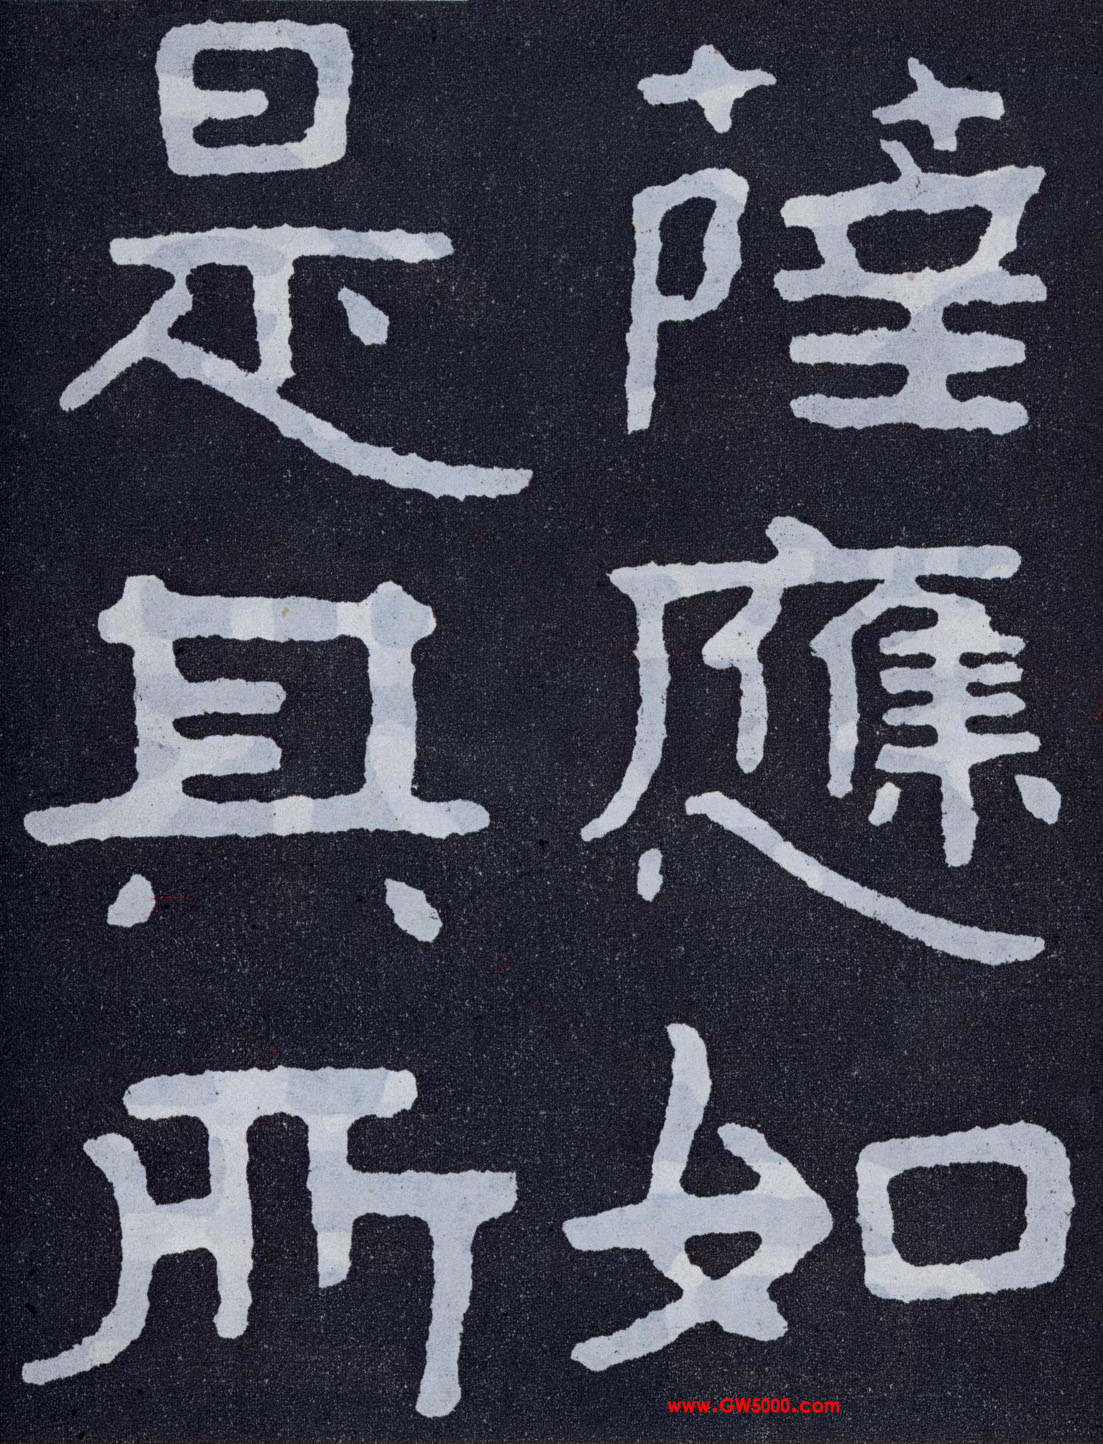 薩應如
是其所
www.GW5000.com